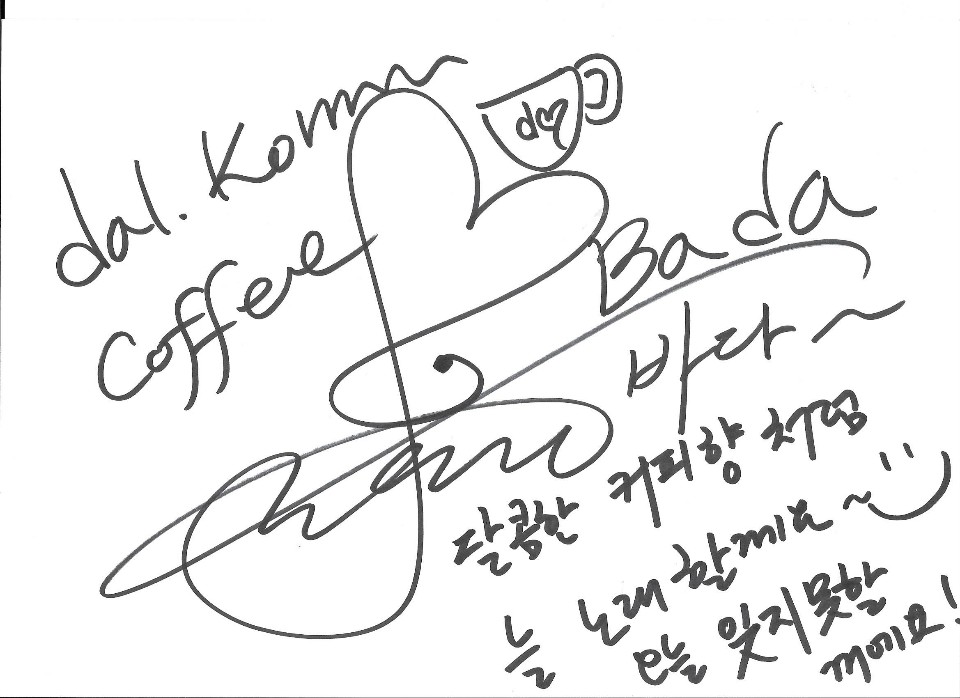 dal.komm
Coffee
d♡
Bada
바다~
달콤한 커피향 처럼
늘 노래 할께요~
오늘 잊지못할
꺼에요!